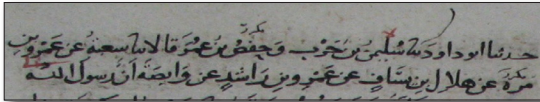 حدثنا ابو داود نا سليمن بن حرب وحفص بن عمر قالا نا شعبة عن عمرو بن
مرة عن هلال بن يساف عن عمرو بن راشد عن وابصة ان رسول الله